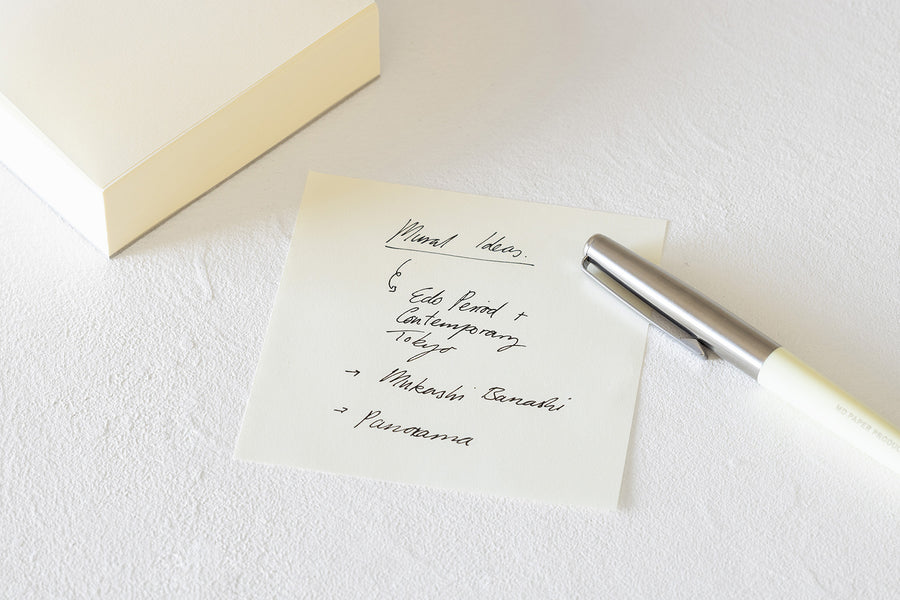 Mural Ideas.
Edo Period +
Contemporary
Tokyo
→ Mukashi Banashi
→ Panorama
MD PAPER PRODU